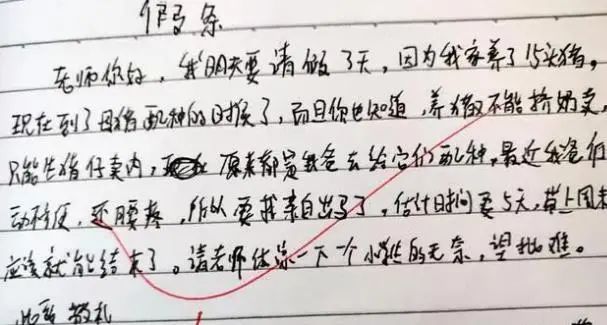 假条
老师你好，我明天要请假3天，因为我家养了15头猪。
现在到了母猪配种的时候了，而且你也知道，养猪又不能挤奶卖，
只能生猪仔卖肉，原来都是我爸去给它们配种，最近我爸行
动不便，还腰疼，所以要我亲自出马了，估计时间要5天，带上周末
应该就能结束了。请老师体谅一下一个小猪的无奈，望批准。
此致 敬礼